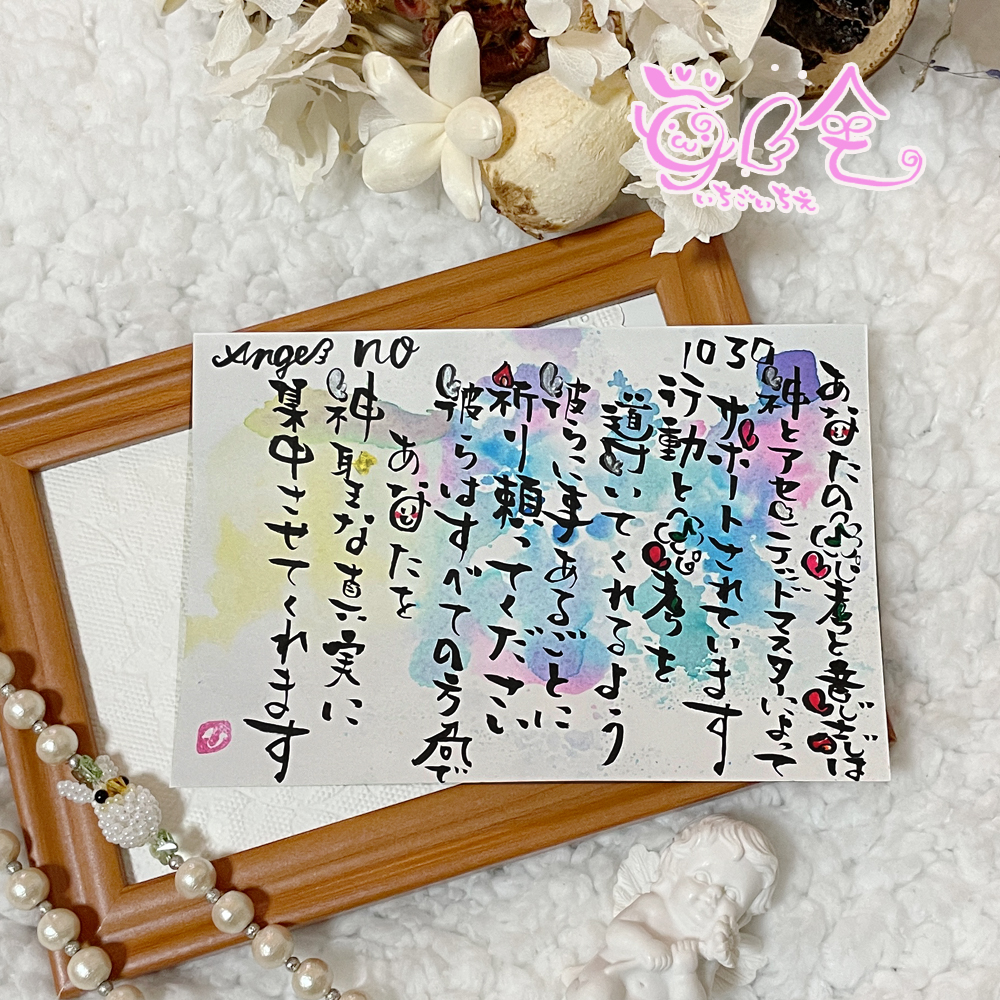 いちごいちえ
Angel no 1037
あなたの思考と意志は
神とアセンデッドマスターによって
サポートされています
行動と思考を
導いてくれるよう
彼らに事あるごとに
祈り頼ってください
彼らはすべての方向で
あなたを
神聖な真実に
集中させてくれます